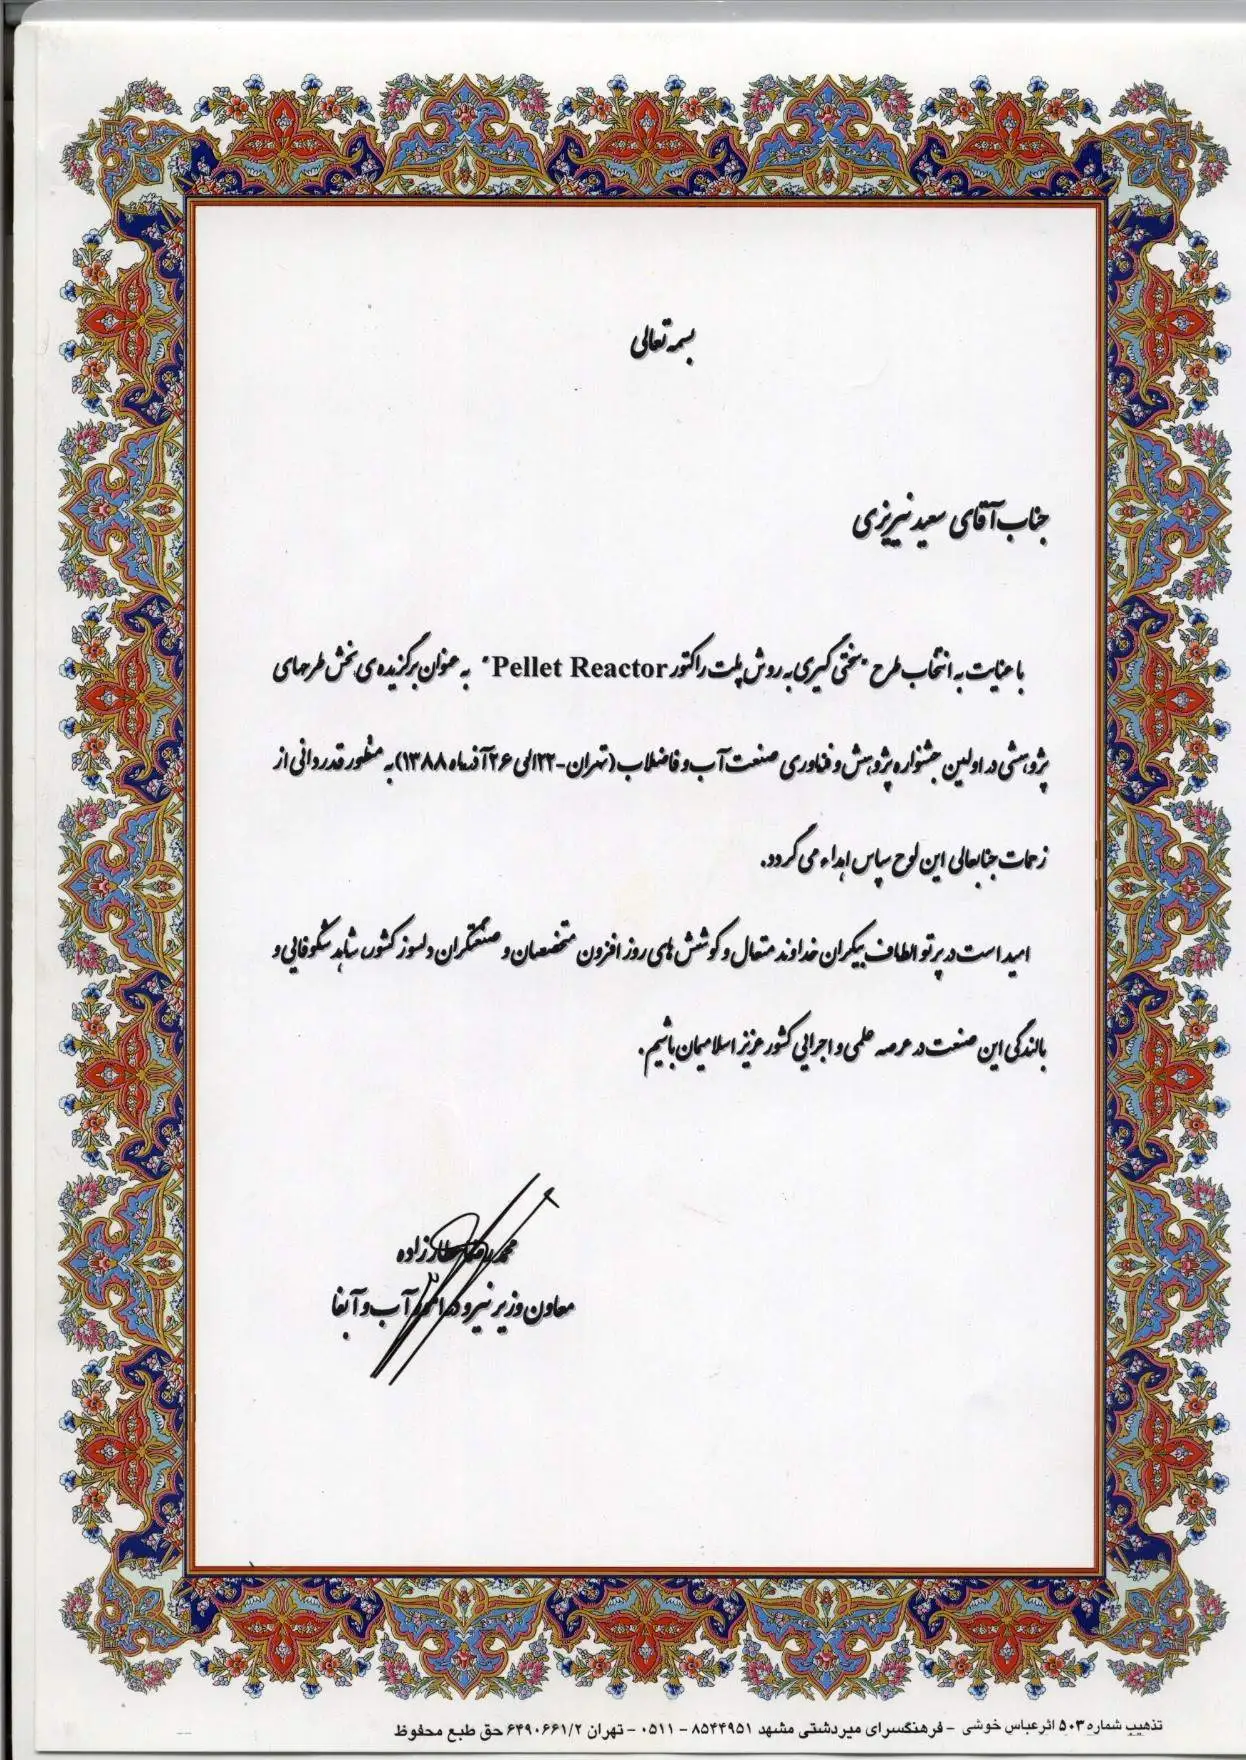 بسمه تعالی
جناب آقای سعید نیریزی
با عنایت به انتخاب طرح "سختی گیری به روش پلت راکتور Pellet Reactor" به عنوان برگزیده ی بخش طرحهای
پژوهشی در اولین جشنواره پژوهش و فناوری صنعت آب و فاضلاب (تهران-۲۲ الی ۲۶ آذرماه ۱۳۸۸) به منظور قدردانی از
زحمات جنابعالی این لوح سپاس اهداء می گردد.
امید است در پرتو الطاف بیکران خداوند متعال و کوشش های روز افزون متخصصان و صنعتگران دلسوز کشور، شاهد شکوفایی و
بالندگی این صنعت در عرصه علمی و اجرایی کشور عزیز اسلامیمان باشیم.
محمدرضا عطارزاده
معاون وزیر نیرو در امور آب و آبفا
تذهیب شماره ۵۰۳ اثر عباس خوشی - فرهنگسرای میردشتی مشهد ۸۵۴۴۹۵۱ - ۰۵۱۱ - تهران ۶۴۹۰۶۶۱/۲ حق طبع محفوظ